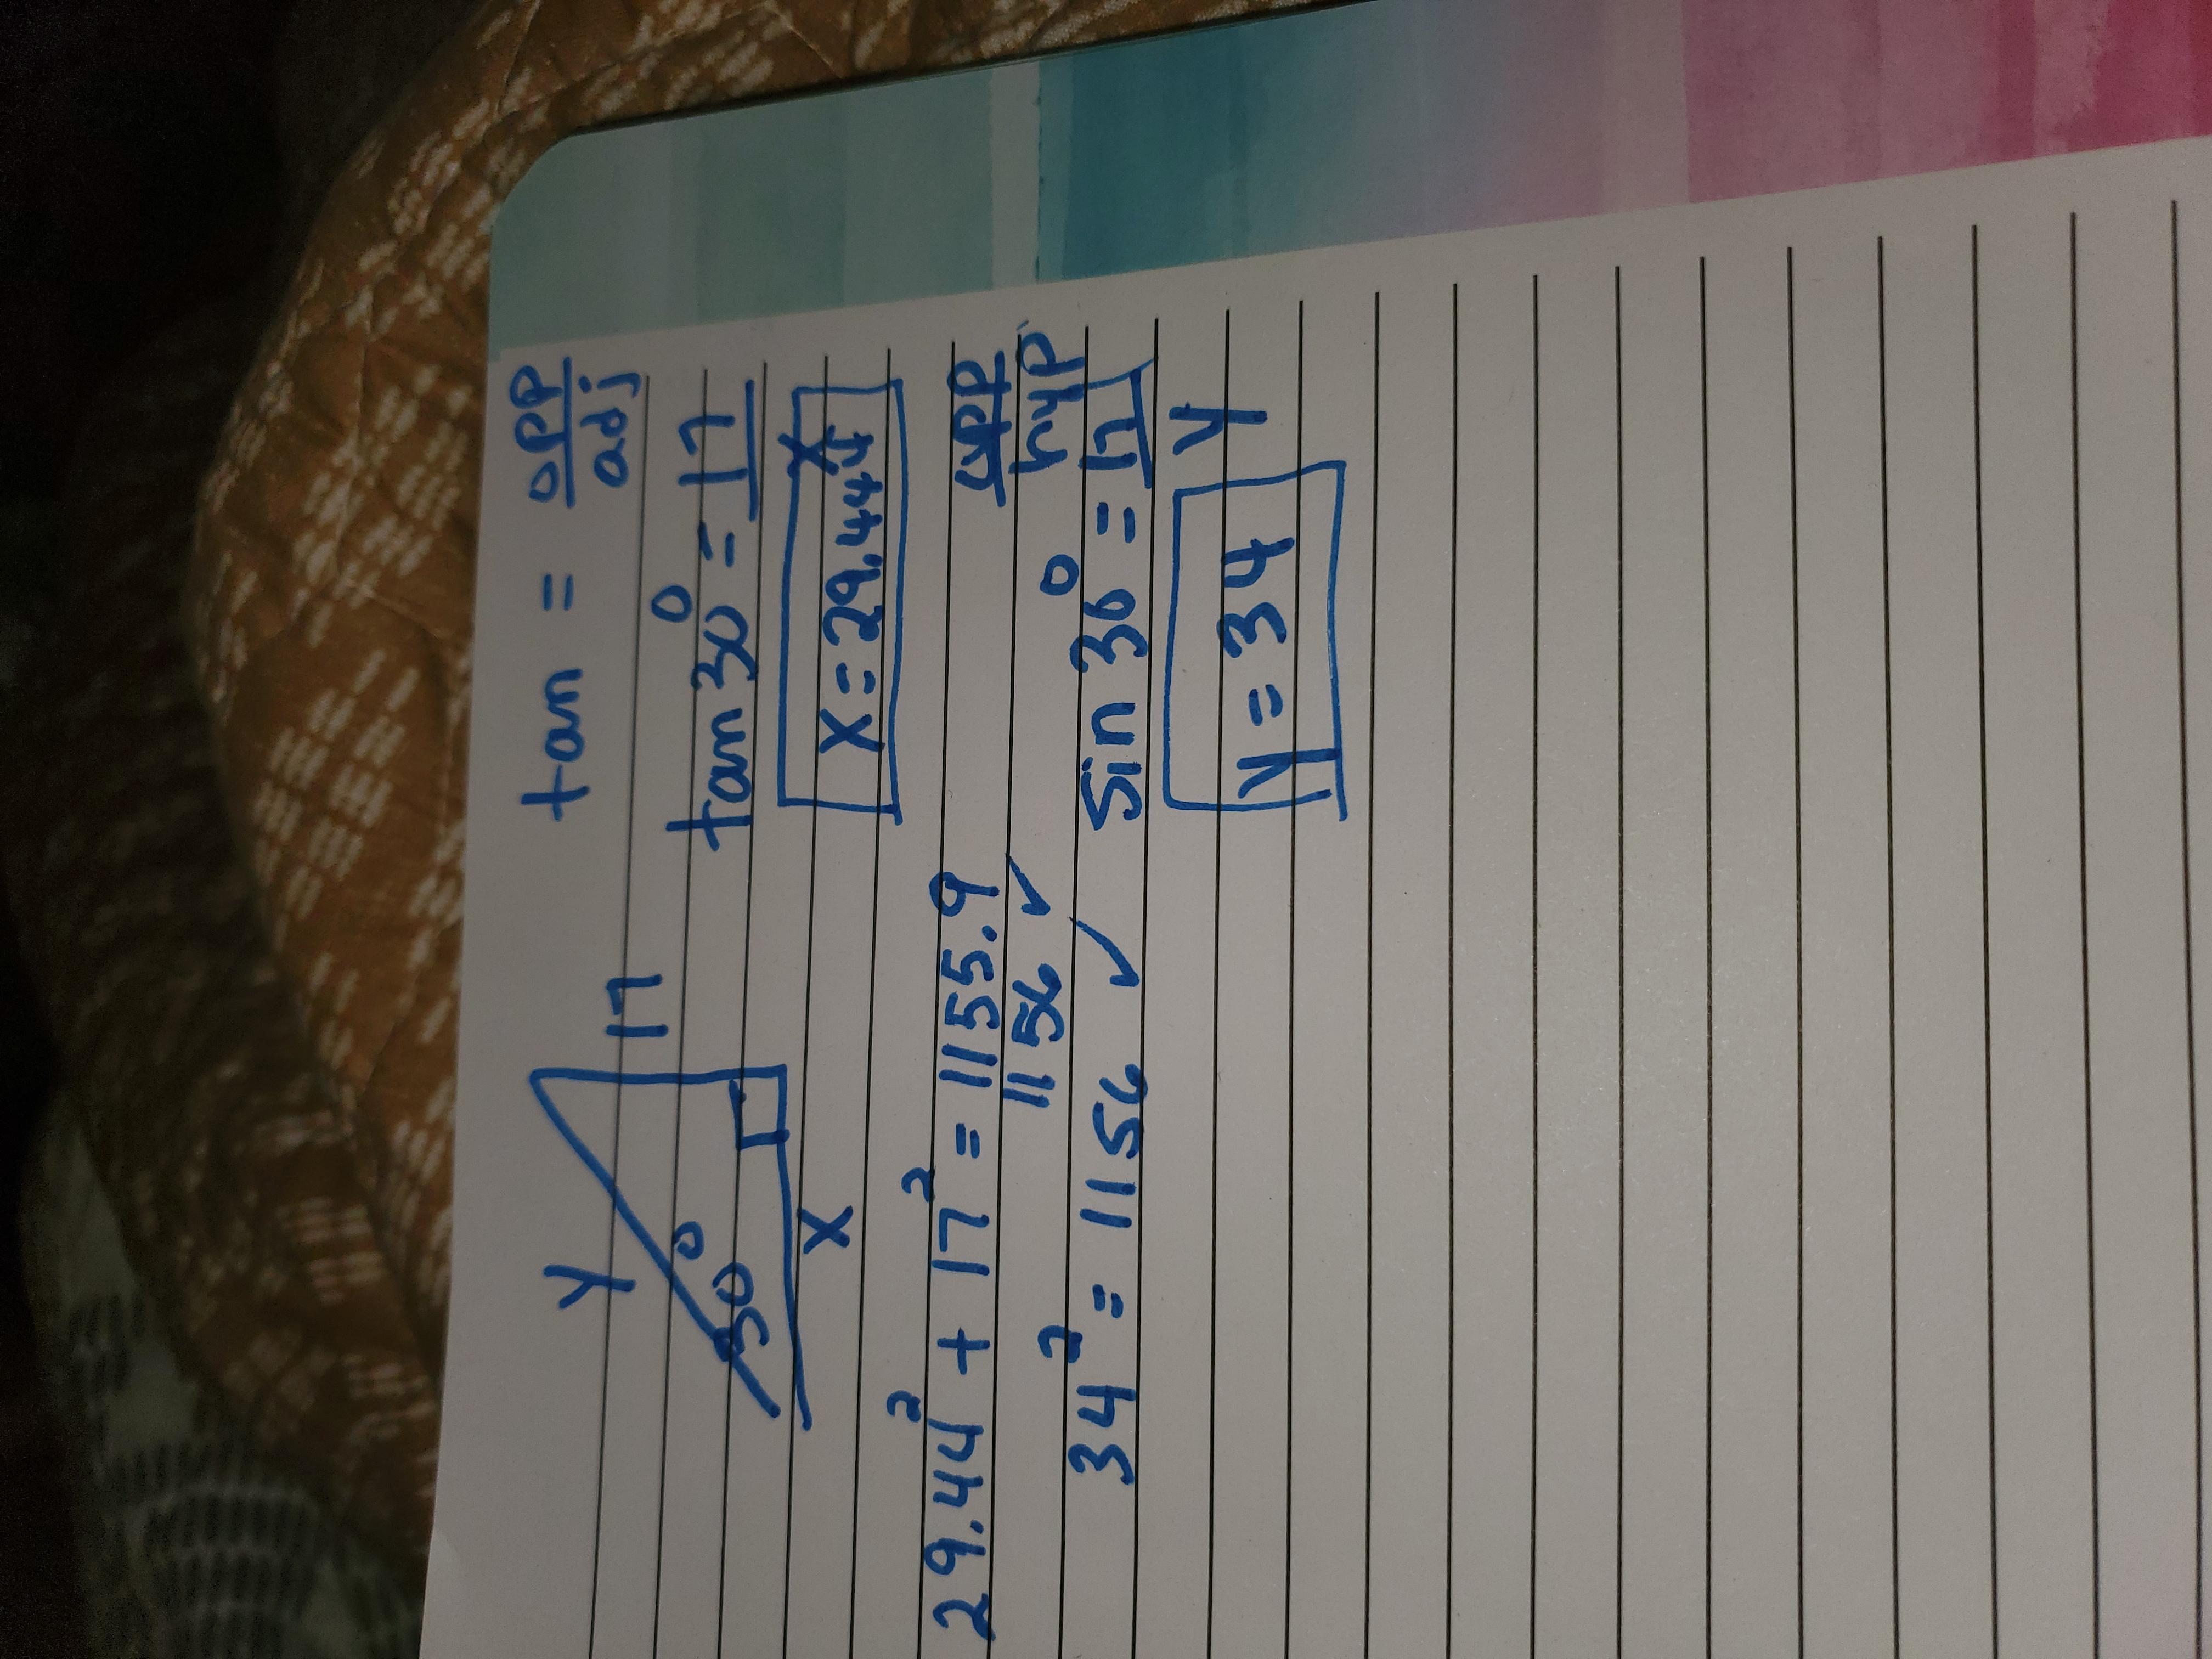 tan = opp
adj
tan 30° = 17
x
x = 29.444
y
17
30°
x
29.44² + 17² = 1155.9
1156 ✓
34² = 1156 ✓
opp
hyp
Sin 30° = 17
y
y = 34